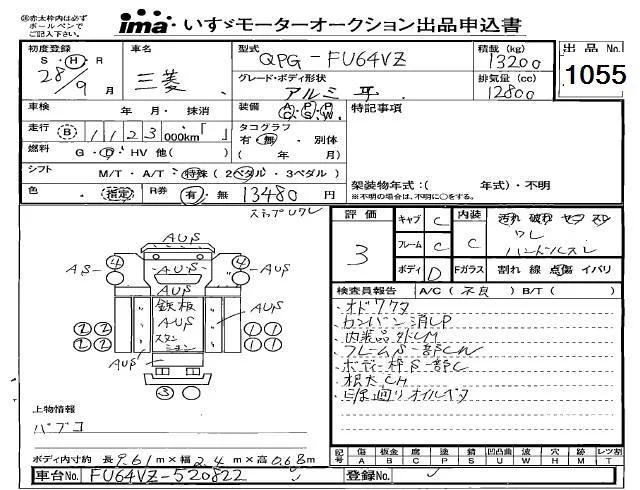 ㊟赤太枠内は必ず
ボールペンで
ご記入下さい。
ima いすゞモーターオークション出品申込書
初度登録 車名 型式 QPG-FU64VZ 積載(kg) 13200 出品No.
S・H・R 28/9月 三菱 グレード・ボディ形状 アルミ平 排気量(cc) 12800 1055
車検 年 月・抹消 装備 A・P・P C・S・W 特記事項
走行 B 1 1 2 3 000km(「 」) タコグラフ 有・無・別体
燃料 G・D・HV 他( ) ( 年 月)
シフト M/T・A/T・特殊(2ペダル・3ペダル)
色 指定 R券 有・無 13480円 架装物年式:( 年式)・不明
※不明の場合は、不明に○をする。
ステップUクレ
評価 3 キャブ C 内装 C 汚れ 破れ ヤコゲ スレ
ワレ
フレーム C ハンドルスレ
ボディ D Fガラス 割れ 線 点傷 イバリ
AUS
AS ④ ④ AUS
AUS
鉄板
AUS AUS
スタンション
② ② ① ①
② ② ① ①
AUS
③
検査員報告 A/C(不良) B/T( )
・オドワクタ
・カンバン消しP
・内装品外しM
・フレームS一部CW
・ボディー枠S一部C
・根太CH
・足廻りオイルベタ
上物情報
パブコ
ボディ内寸約 長9.61m×幅2.4m×高0.68m
記号 傷 A 板金 B 腐 C 塗 P 錆 S 凹凸曲 U 波 W 穴 H 跡 M 欠 K レツ割 T
車台No. FU64VZ-520822 登録No.